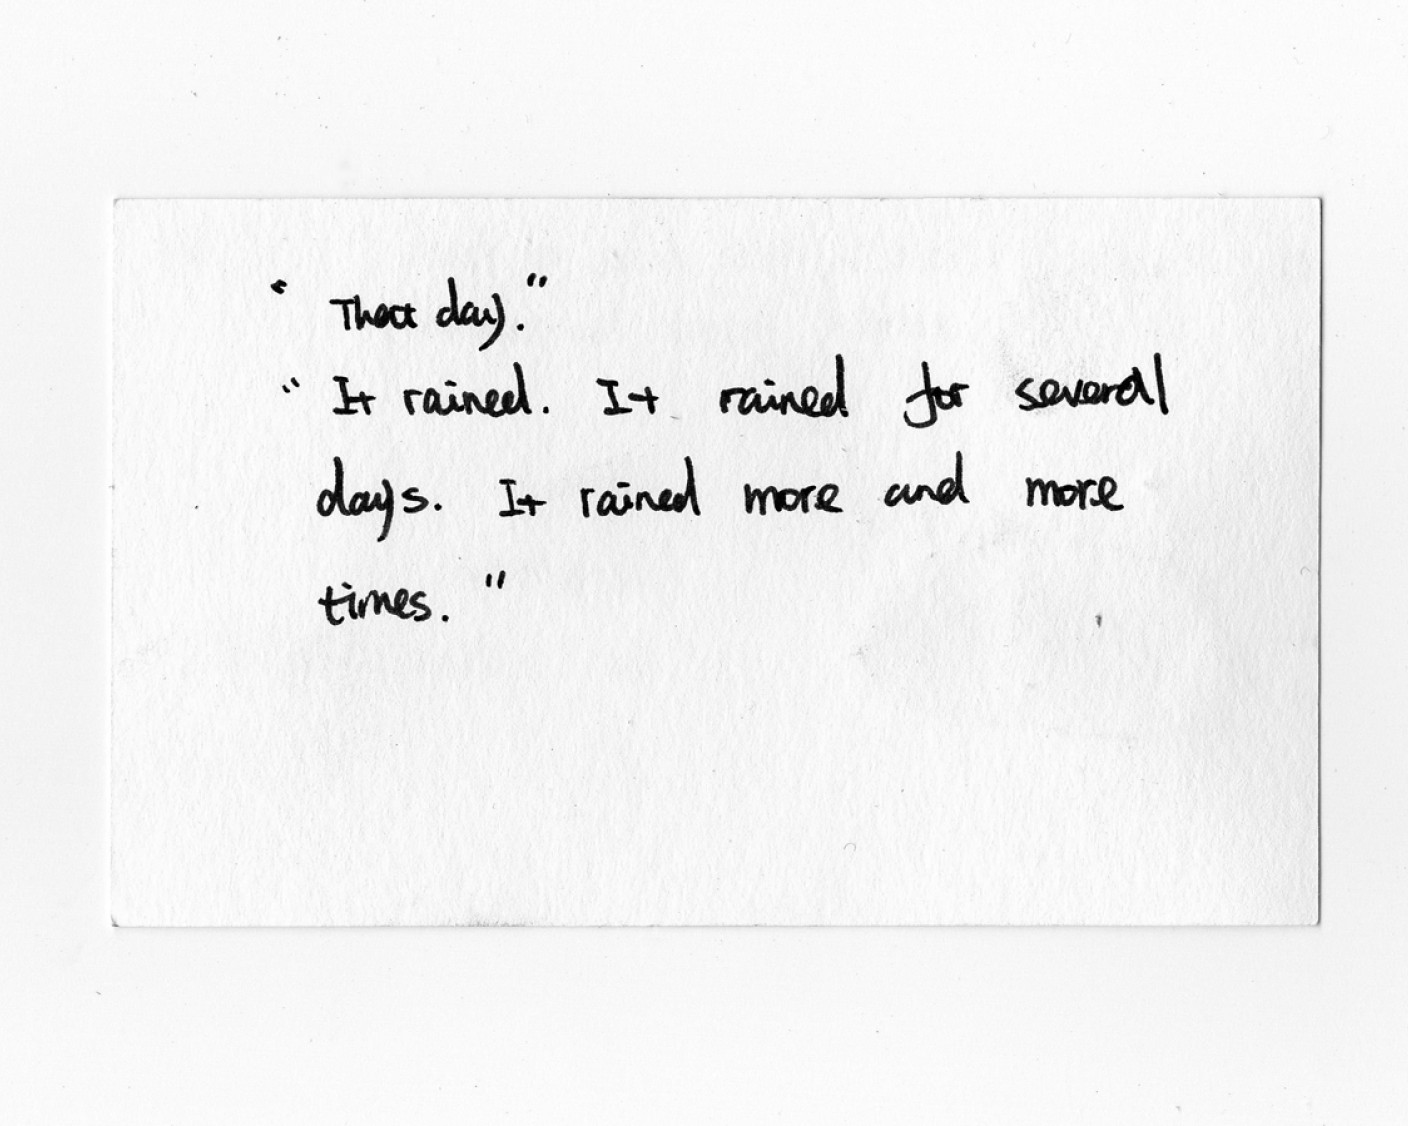 "That day."
"It rained. It rained for several
days. It rained more and more
times."